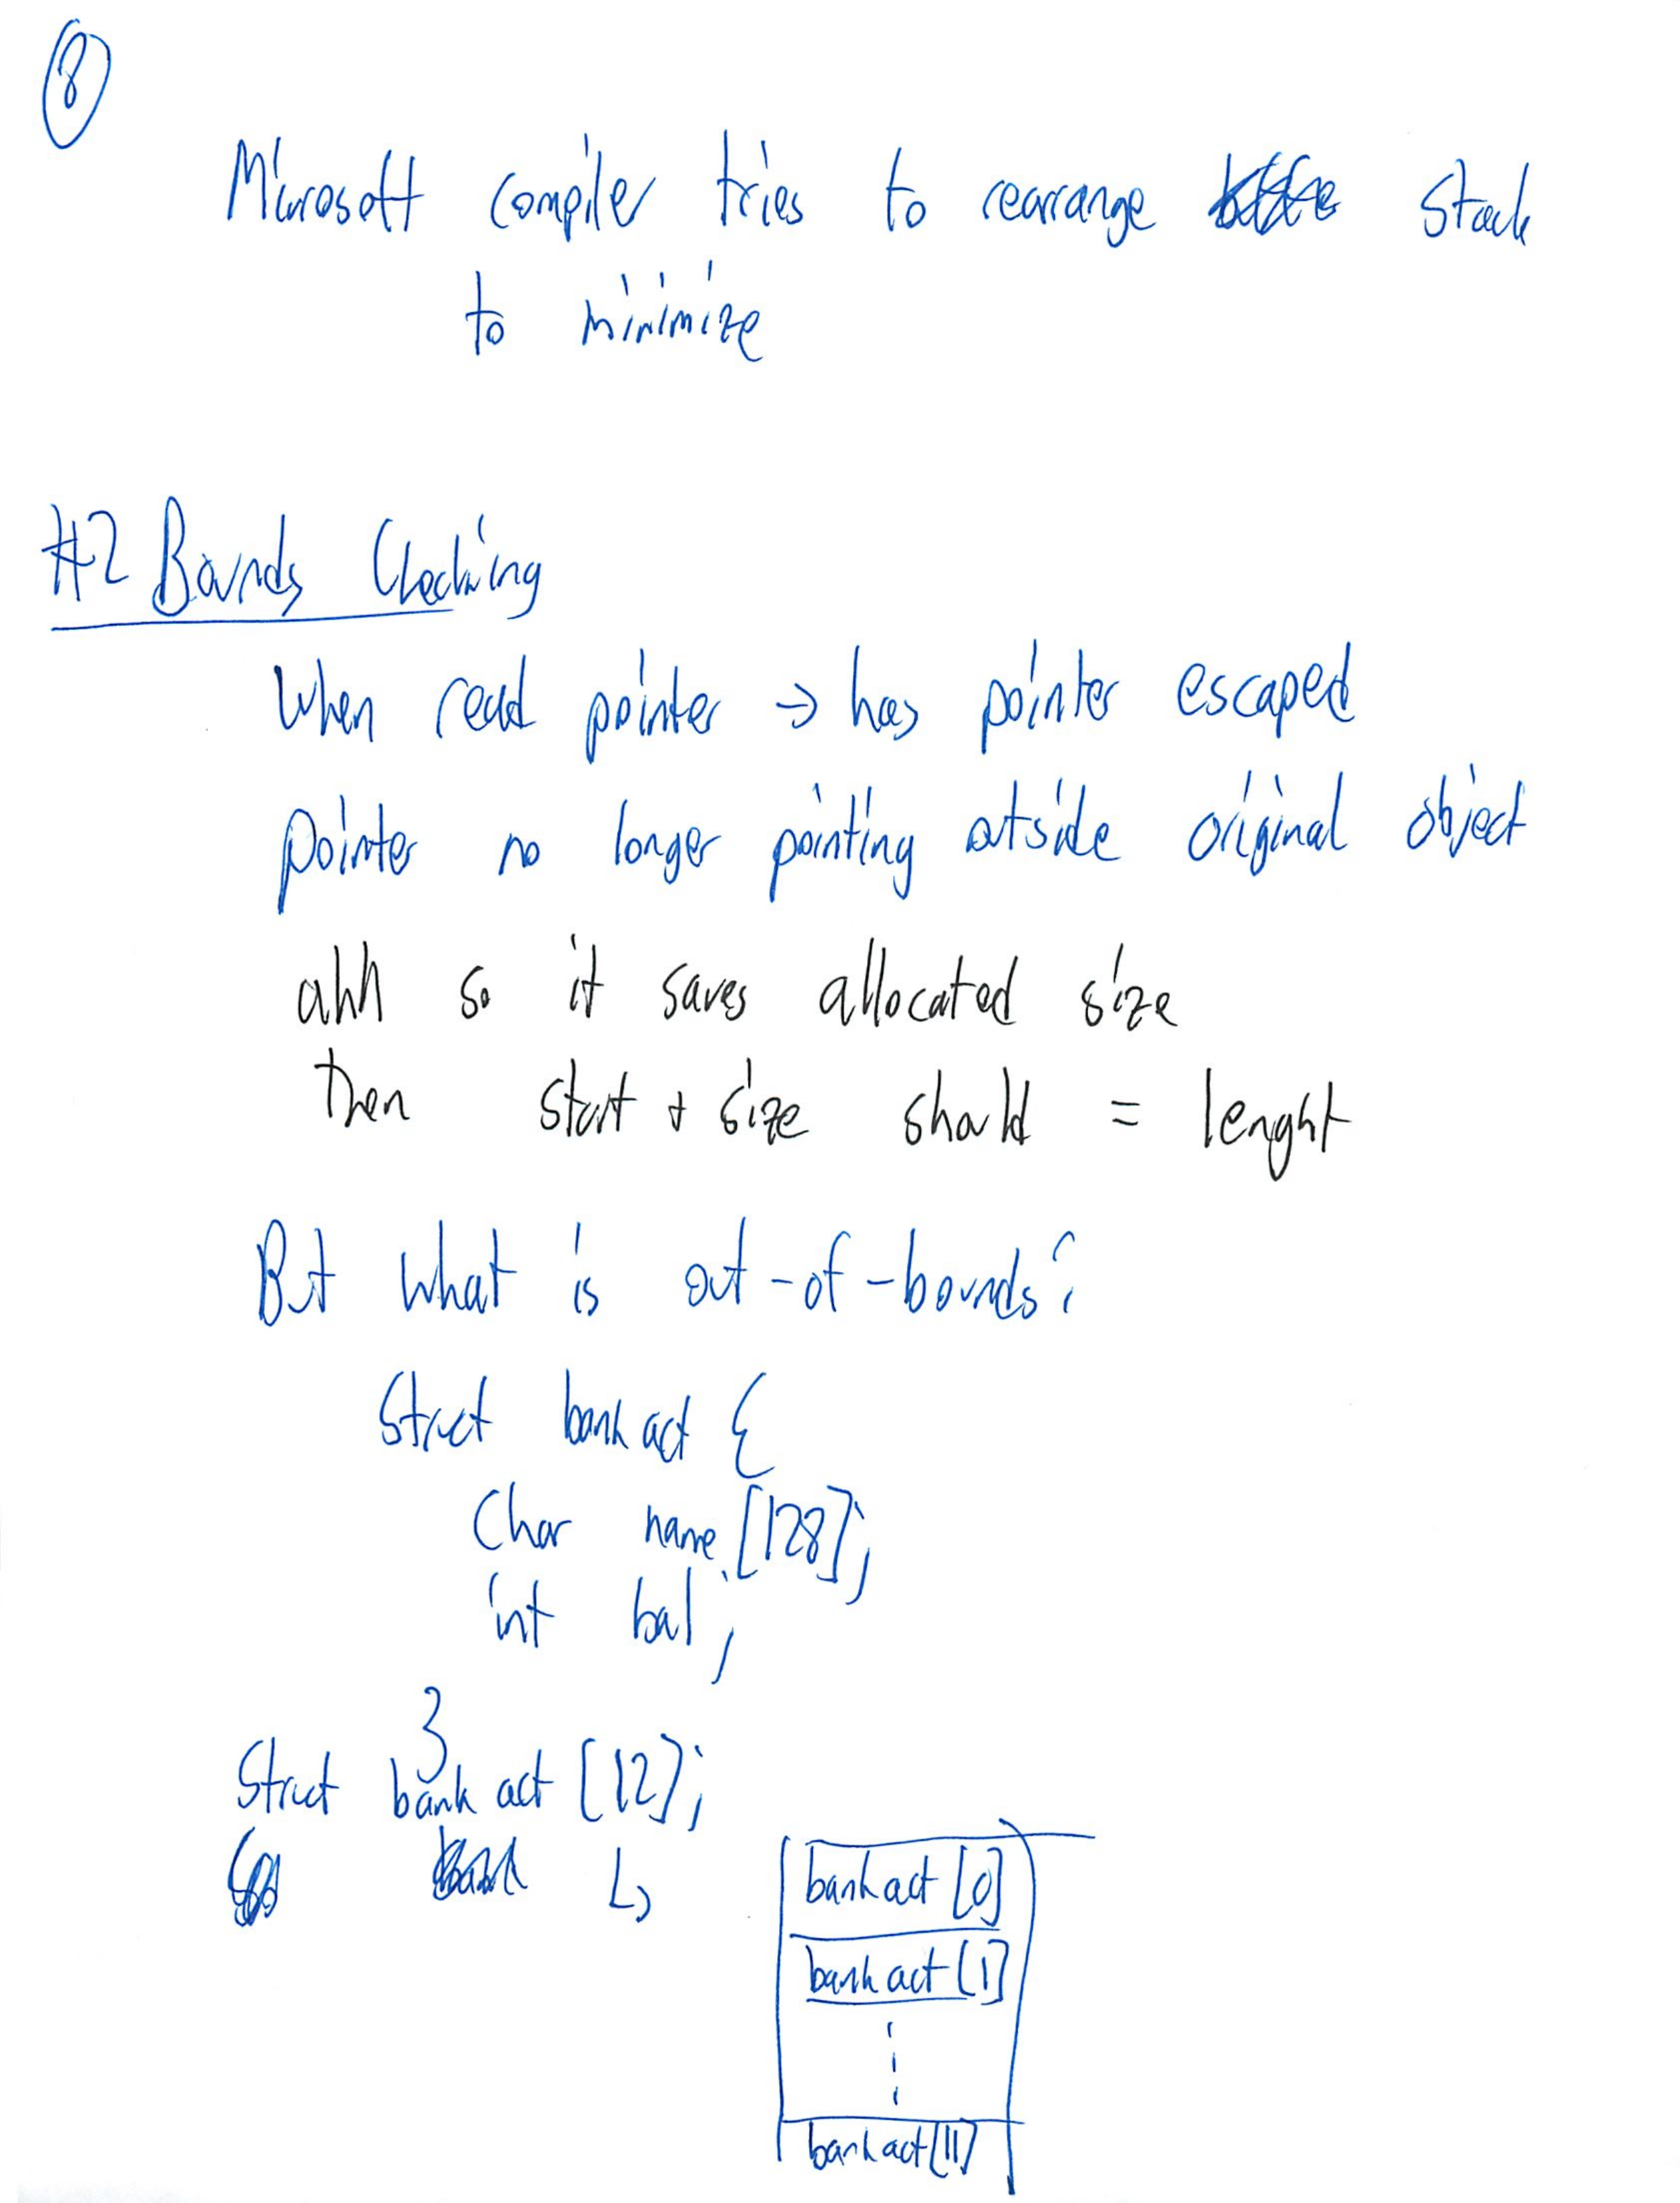 8
Microsoft compiler tries to rearrange stack
to minimize
#2 Bounds Checking
When read pointer → has pointer escaped
pointer no longer pointing outside original object
ahh so it saves allocated size
then start + size should = lenght
But what is out-of-bounds?
Struct bank act {
Char name [128];
int bal;
}
Struct bank act [12];
↳
bank act [0]
bank act [1]
bank act [11]